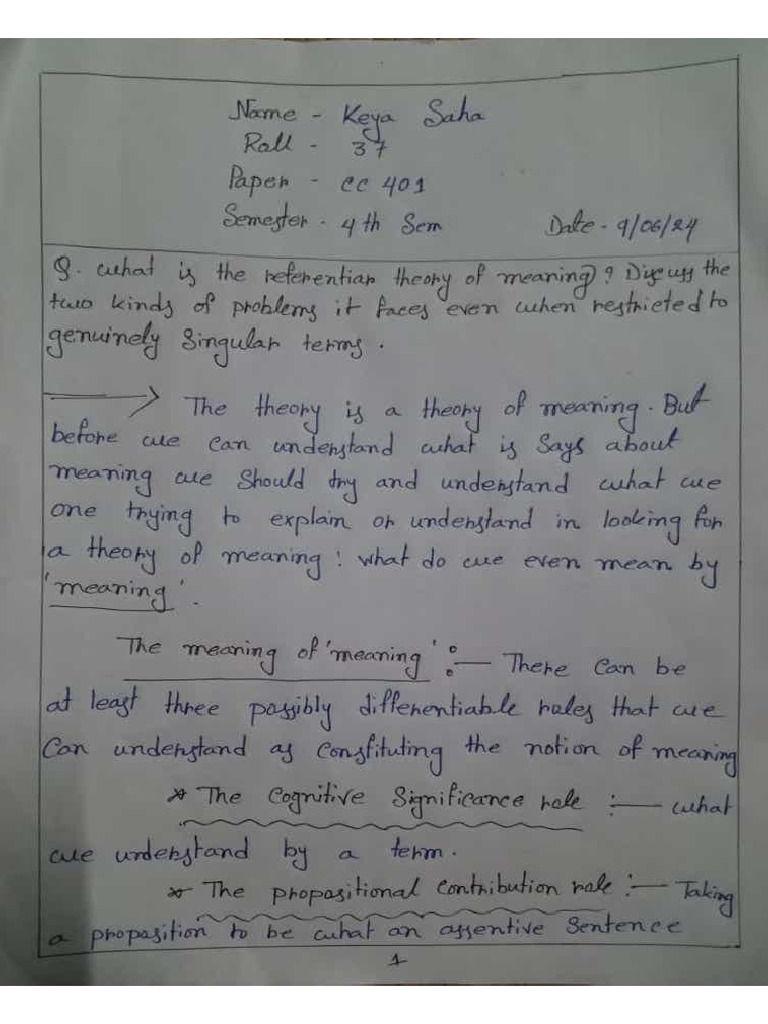 Name - Keya Saha
Roll - 37
Paper - CC 401
Semester - 4th Sem Date - 9/06/24
Q. What is the referentian theory of meaning? Discuss the
two kinds of problems it faces even when restricted to
genuinely singular terms.
The theory is a theory of meaning. But
before we can understand what is says about
meaning we should try and understand what we
one trying to explain or understand in looking for
a theory of meaning: what do we even mean by
'meaning'.
The meaning of 'meaning' :— There can be
at least three possibly differentiable roles that we
can understand as constituting the notion of meaning
* The Cognitive Significance role :— what
we understand by a term.
* The propositional contribution role :— Taking
a proposition to be what an assentive sentence
1